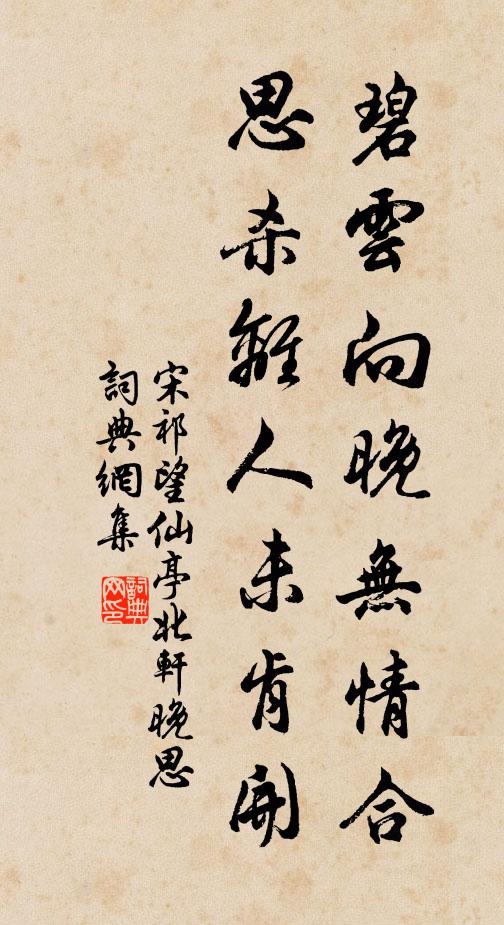 碧雲向晚無情合
思杀離人未肯開
宋祁望仙亭北軒晚思
詞典網集
詞典网印